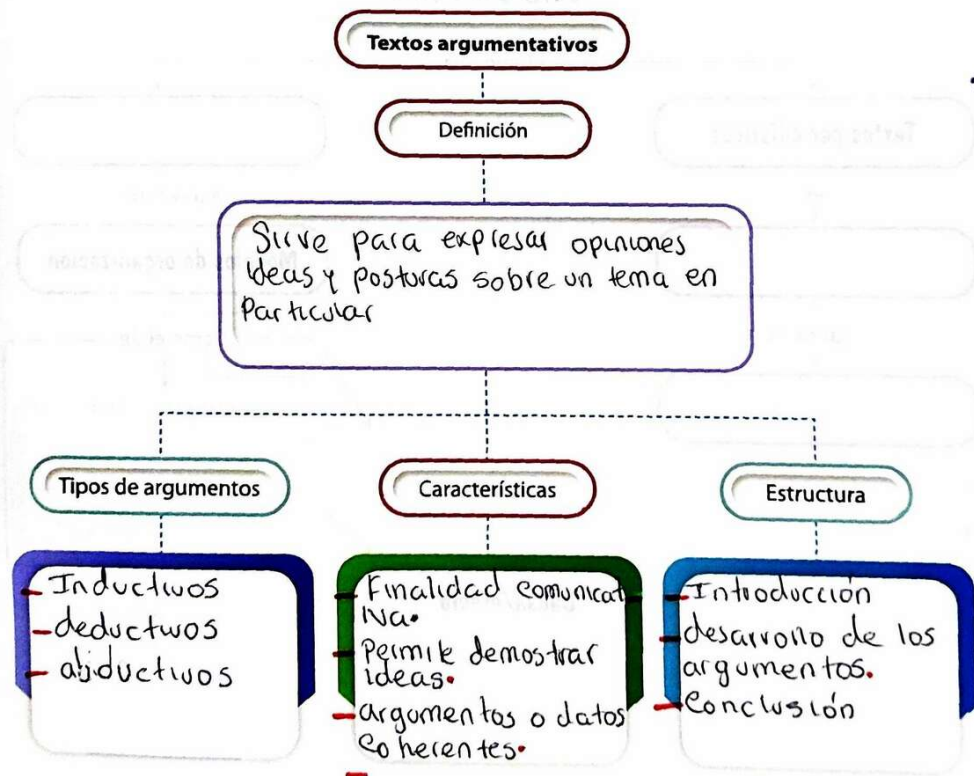 Textos argumentativos
Definición
Sirve para expresar opiniones
ideas y posturas sobre un tema en
Particular
Tipos de argumentos
Características
Estructura
- Inductivos
- deductivos
- abductivos
- Finalidad comunicat
iva.
- Permite demostrar
ideas.
- argumentos o datos
coherentes.
- Introducción
- desarrollo de los
argumentos.
- Conclusión